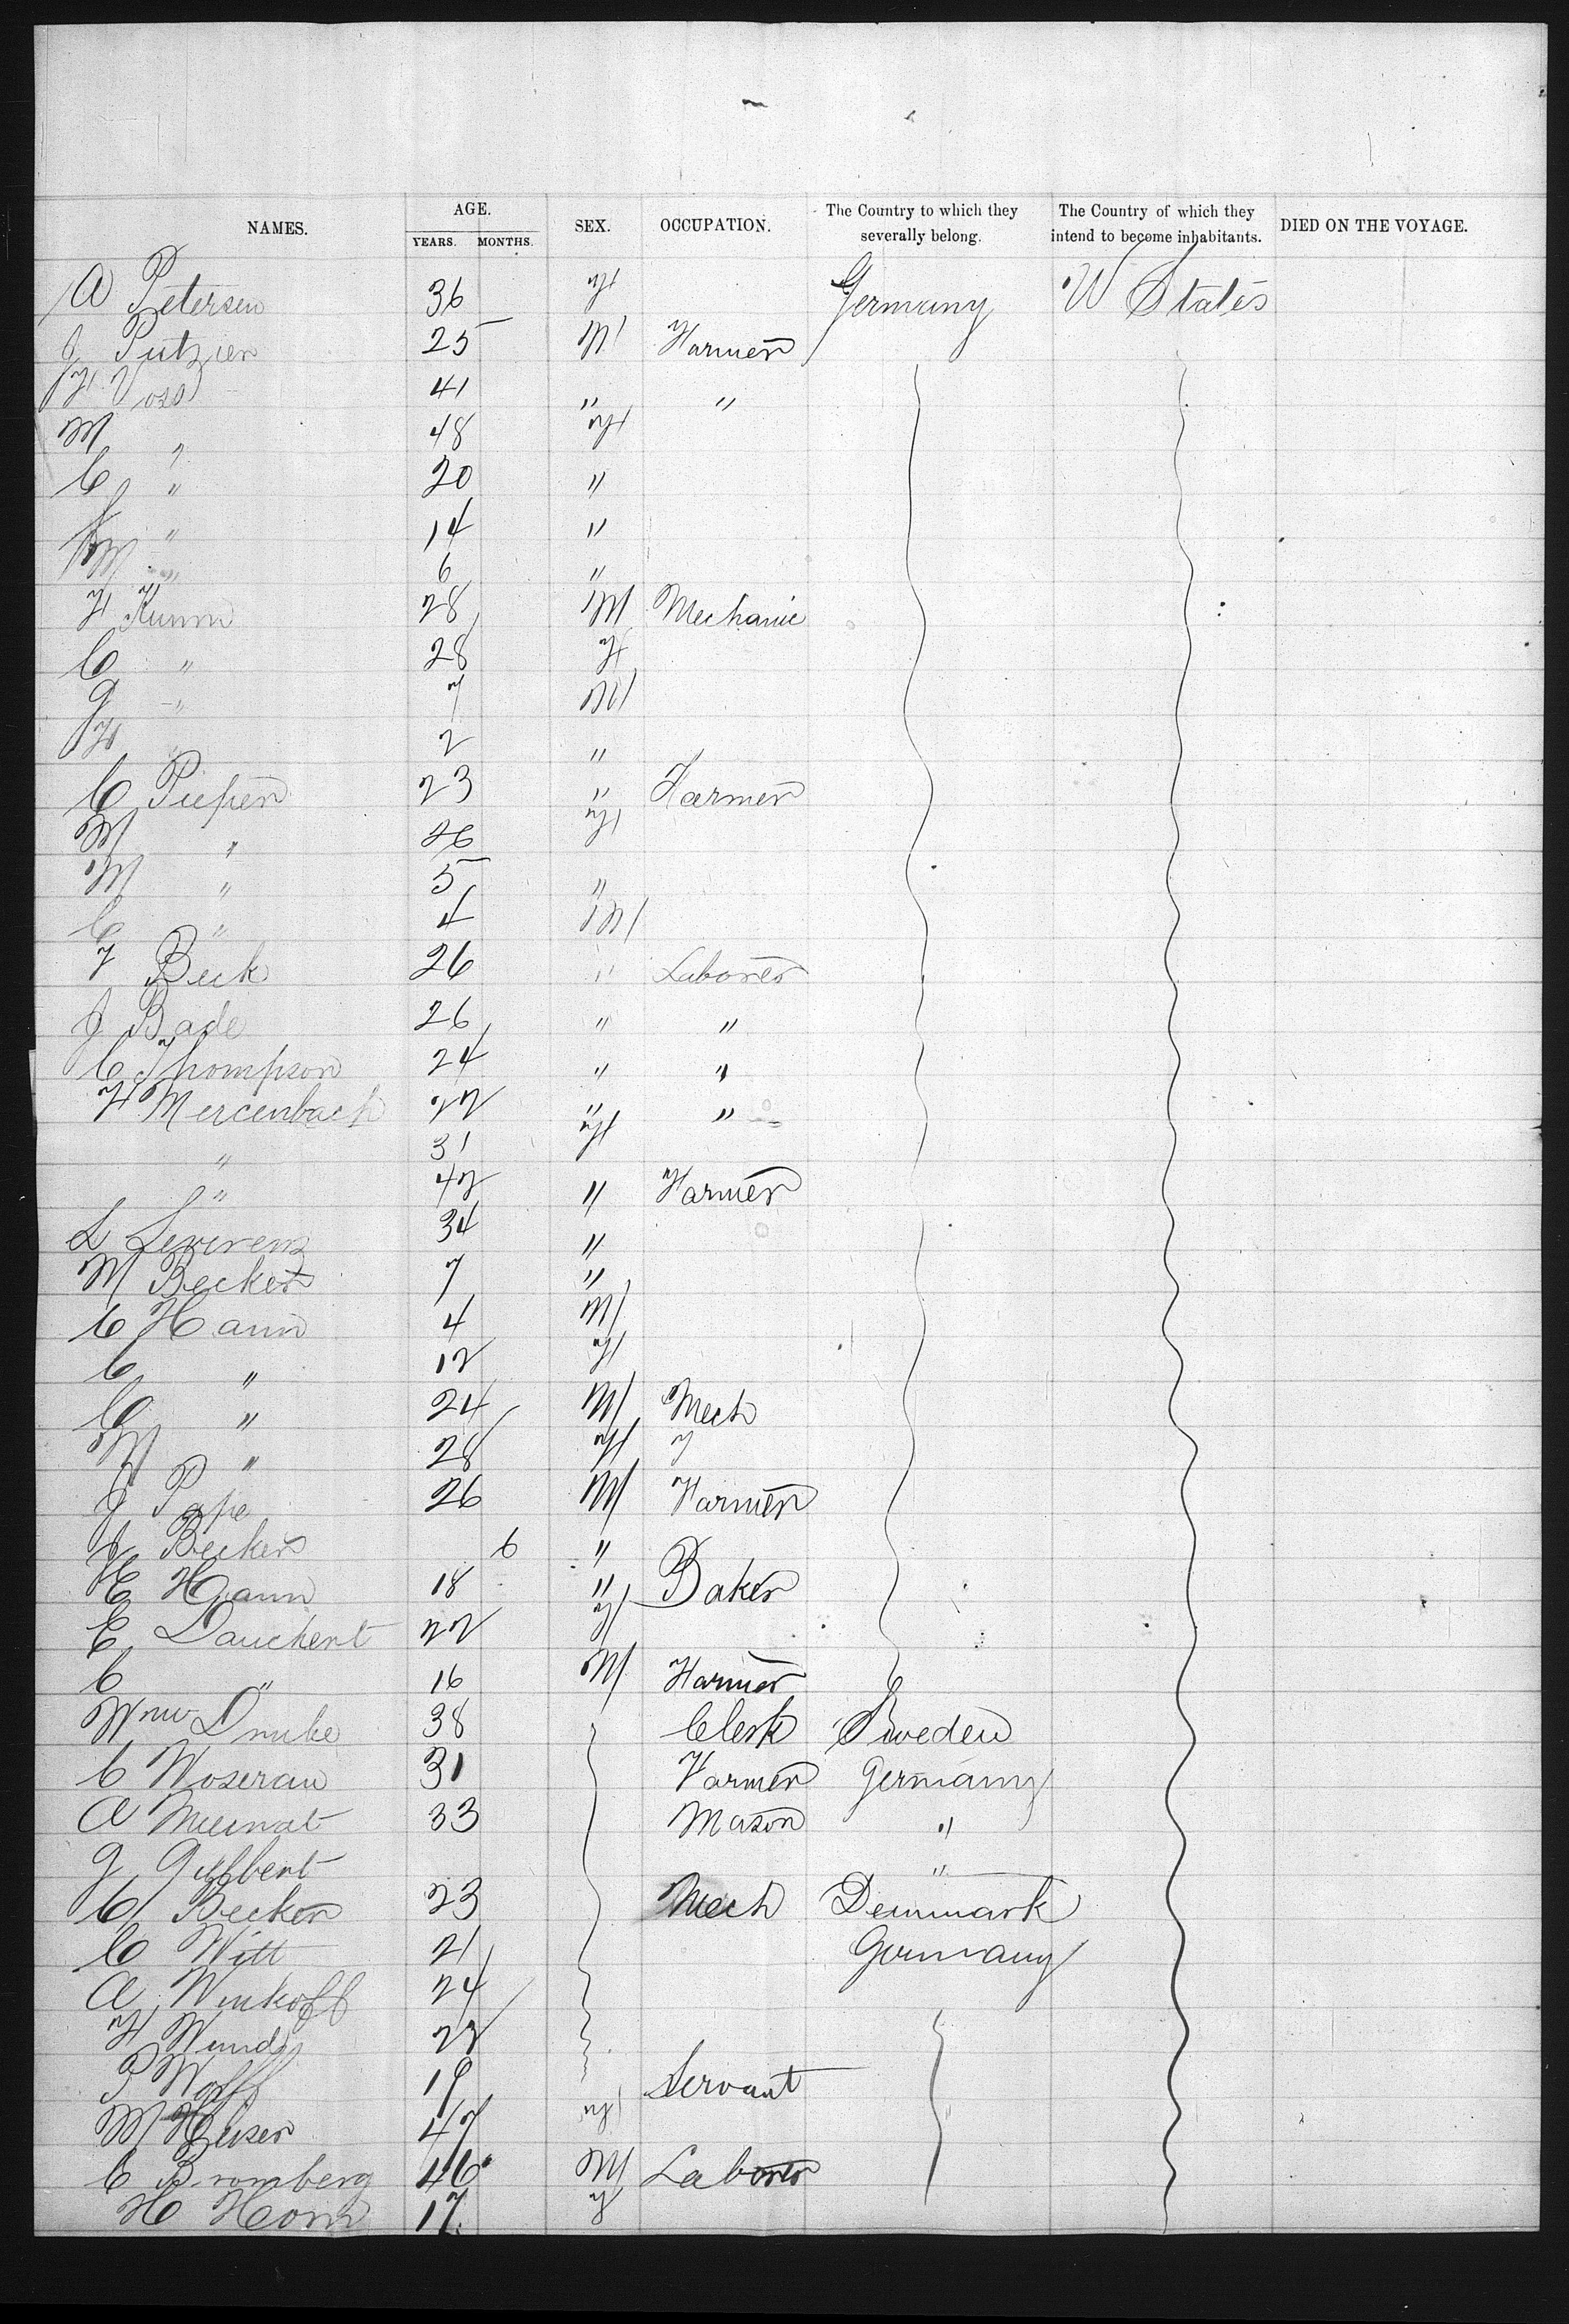 NAMES. AGE. YEARS. MONTHS. SEX. OCCUPATION. The Country to which they severally belong. The Country of which they intend to become inhabitants. DIED ON THE VOYAGE.
A Petersen 36 F Germany U States
J Putzier 25 M Farmer
F Voss 41 " "
M " 48 F
C " 20 "
" 14 "
M " 6 "
F Kumm 28 M Mechanic
C " 28 F
G " 7 M
F 2 "
C Pieper 23 " Farmer
M " 26 F
M " 5 "
C " 4 M
F Beck 26 " Laborer
J Bade 26 " "
C Thompson 24 " "
F Mercenbach 22 " "
" 31 F
" 42 " Farmer
L Severenz 34 "
M Becker 7 "
C Hann 4 M
C " 12 F
C " 24 M Mech
M " 28 F
J Pape 26 M Farmer
J Becker 6 "
E Hann 18 " Baker
E Dauchert 22 F
C " 16 M Farmer
Wm Druke 38 Clerk Sweden
C Woserau 31 Farmer Germany
A Meinat 33 Mason "
G Gilbert "
C Becker 23 Mech Denmark
C Witt 21 Germany
A Winkoff 24
F Wund 22
P Wolff 19 Servant
M Heiser 47 F
C Bromberg 46 M Laborer
H Horn 17 F